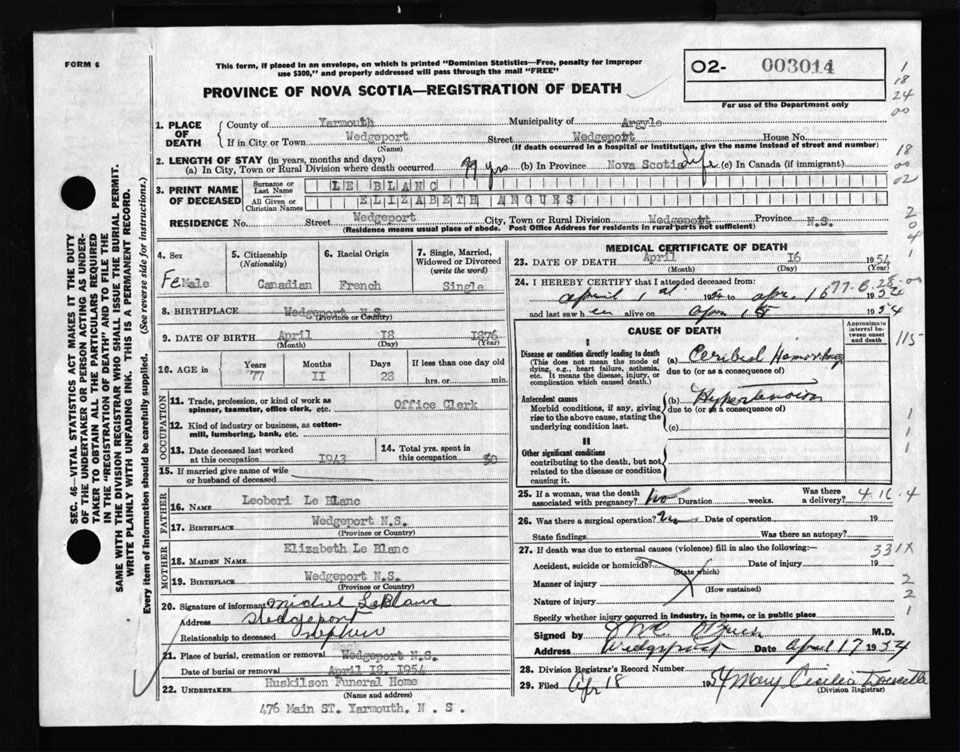 FORM 6
This form, if placed in an envelope, on which is printed "Dominion Statistics—Free, penalty for improper
use $300," and properly addressed will pass through the mail "FREE"
PROVINCE OF NOVA SCOTIA—REGISTRATION OF DEATH
O2- 003014
For use of the Department only
1
18
24
00
18
00
02
2
0
4
1. PLACE OF DEATH
County of Yarmouth Municipality of Argyle
If in City or Town Wedgeport Street Wedgeport House No.
(Name) (If death occurred in a hospital or institution, give the name instead of street and number)
2. LENGTH OF STAY (in years, months and days)
(a) In City, Town or Rural Division where death occurred 77 yrs (b) In Province Nova Scotia life (c) In Canada (if immigrant)
3. PRINT NAME OF DECEASED
Surname or Last Name LE BLANC
All Given or Christian Names ELIZABETH ANGURS
RESIDENCE No. Street Wedgeport City, Town or Rural Division Wedgeport Province N.S.
(Residence means usual place of abode. Post Office Address for residents in rural parts not sufficient)
SEC. 46 VITAL STATISTICS ACT MAKES IT THE DUTY
OF THE UNDERTAKER OR PERSON ACTING AS UNDER-
TAKER TO OBTAIN ALL THE PARTICULARS REQUIRED
IN THE "REGISTRATION OF DEATH" AND TO FILE THE
SAME WITH THE DIVISION REGISTRAR WHO SHALL ISSUE THE BURIAL PERMIT.
WRITE PLAINLY WITH UNFADING INK. THIS IS A PERMANENT RECORD.
Every item of information should be carefully supplied. (See reverse side for instructions.)
4. Sex
FeMale
5. Citizenship
(Nationality)
Canadian
6. Racial Origin
French
7. Single, Married,
Widowed or Divorced
(write the word)
Single
8. BIRTHPLACE Wedgeport N.S.
(Province or Country)
9. DATE OF BIRTH April 18 1876
(Month) (Day) (Year)
10. AGE in
Years Months Days If less than one day old
77 11 28 hrs. or min.
OCCUPATION
11. Trade, profession, or kind of work as
spinner, teamster, office clerk, etc. Office Clerk
12. Kind of industry or business, as cotton-
mill, lumbering, bank, etc.
13. Date deceased last worked
at this occupation 1943
14. Total yrs. spent in
this occupation 50
15. If married give name of wife
or husband of deceased
FATHER
16. NAME Leoberi Le Blanc
17. BIRTHPLACE Wedgeport N.S.
(Province or Country)
MOTHER
18. MAIDEN NAME Elizabeth Le Blanc
19. BIRTHPLACE Wedgeport N.S.
(Province or Country)
20. Signature of informant Michel LeBlanc
Address Wedgeport
Relationship to deceased nephew
21. Place of burial, cremation or removal Wedgeport N.S.
Date of burial or removal April 18. 1954
22. UNDERTAKER Huskilson Funeral Home
(Name and address)
476 Main ST. Yarmouth, N . S .
MEDICAL CERTIFICATE OF DEATH
23. DATE OF DEATH April 16 1954
(Month) (Day) (Year)
24. I HEREBY CERTIFY that I attended deceased from:
April 1st 1954 to Apr. 16 1954
and last saw her alive on Apr. 15 1954
CAUSE OF DEATH
Approximate
interval be-
tween onset
and death
115
I
Disease or condition directly leading to death
(This does not mean the mode of
dying, e.g., heart failure, asthenia,
etc. It means the disease, injury, or
complication which caused death.)
(a) Ceribial Hemorrhage
due to (or as a consequence of)
Antecedent causes
Morbid conditions, if any, giving
rise to the above cause, stating the
underlying condition last.
(b) Hypertension
due to (or as a consequence of)
(c)
1
1
1
II
Other significant conditions
contributing to the death, but not
related to the disease or condition
causing it.
25. If a woman, was the death
associated with pregnancy? No Duration weeks. Was there
a delivery? 4.16.4
26. Was there a surgical operation? No Date of operation 19
State findings Was there an autopsy?
27. If death was due to external causes (violence) fill in also the following:— 331X
Accident, suicide or homicide? Date of injury 19
(State which)
Manner of injury
(How sustained)
Nature of injury
Specify whether injury occurred in industry, in home, or in public place
2
2
1
Signed by M.D.
Address Wedgeport Date April 17 1954
28. Division Registrar's Record Number
29. Filed Apr 18 1954 Mary Cecilia Doucette
(Division Registrar)